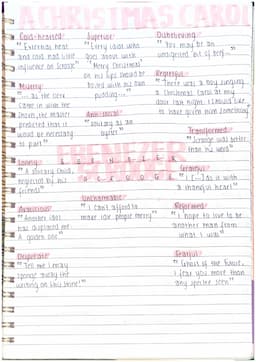 A CHRISTMAS CAROL
Cold-hearted:
"External heat
and cold had little
influence on Scrooge"
Superior:
"Every idiot who
goes about with
'Merry Christmas'
on his lips should be
boiled with his own
pudding..."
Disbelieving:
"You may be an
undigested bit of beef..."
Regretful:
"There was a boy singing
a Christmas Carol at my
door last night. I should like
to have given him something"
Miserly:
"the clerk
came in with the
shovel, the master
predicted that it
would be necessary
to part"
Anti-social:
"solitary as an
oyster"
Transformed:
"Scrooge was better
than his word"
EBENEZER
SCROOGE
Lonely:
"A solitary child,
neglected by his
friends"
Grateful:
"I do it with
a thankful heart"
Avaricious:
"Another idol
has displaced me
A golden one"
Uncharitable:
"I can't afford to
make idle people merry"
Reformed:
"I hope to live to be
another man from
what I was"
Desperate:
"Tell me I may
sponge away the
writing on this stone!"
Fearful:
"Ghost of the Future,
I fear you more than
any spectre seen"